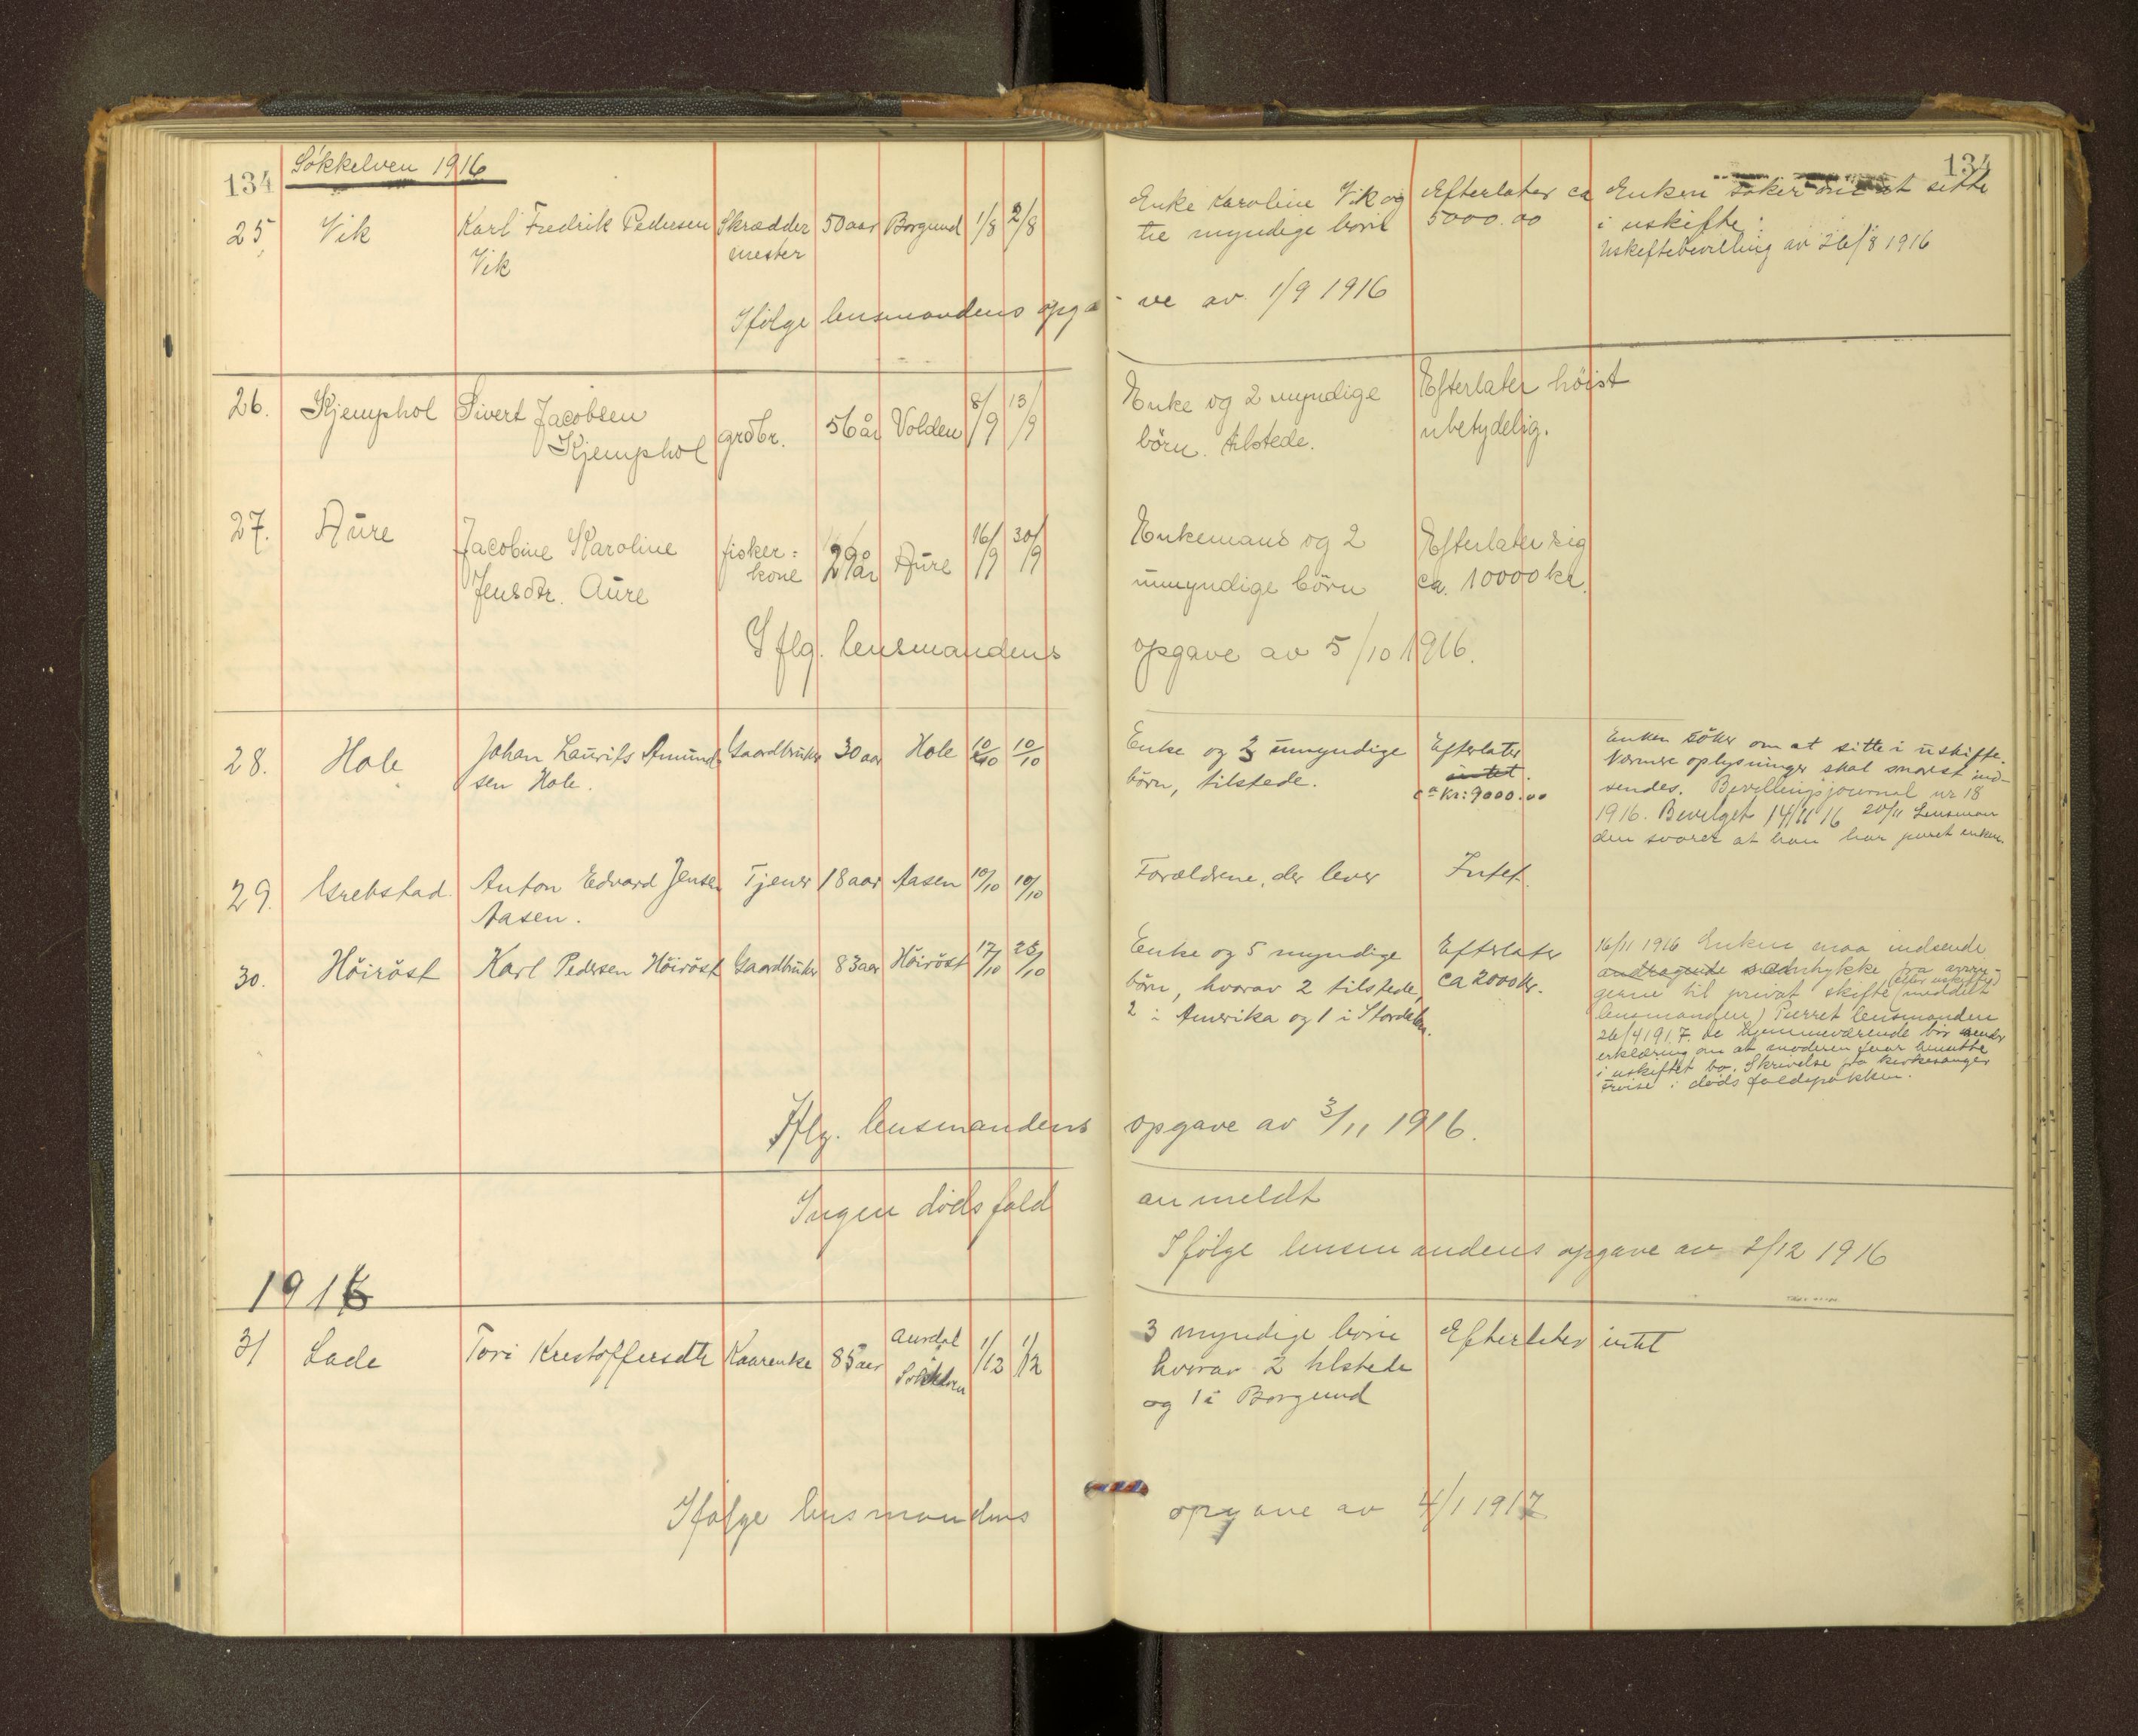 134 Sökkelven 1916 134
25 Vik Karl Fredrik Pedersen Skrædder 50 aar Borgund 1/8 2/8 Enke Karoline Vik og Efterlater ca Enken søker om at sitte
Vik mester tre myndige born 5000.00 i uskifte.
Uskiftebevilling av 26/8 1916
Ifölge lensmandens opga- ve av 1/9 1916
26. Kjemphol Sivert Jacobsen grdbr. 56 år Volden 8/9 13/9 Enke og 2 myndige Efterlater höist
Kjemphol börn. tilstede. ubetydelig.
27. Aure Jacobine Karoline fisker= 29 år Aure 16/9 30/9 Enkemand og 2 Efterlater sig
Jensdtr. Aure kone umyndige börn ca. 10000 kr.
Iflg. lensmandens opgave av 5/10 1916.
28. Hole Johan Laurits Amund- Gaardbruker 30 aar Hole 10/10 10/10 Enke og 3 umyndige Efterlater Enken söker om at sitte i uskifte.
sen Hole. börn, tilstede. intet. Nærmere oplysninger skal snarest ind-
ca Kr: 9000.00 sendes. Bevillingsjournal nr 18
1916. Bevilget 14/11 16 20/11 Lensman
den svarer at han har enken
29. Grebstad. Anton Edvard Jensen Tjener 18 aar Aasen 10/10 10/10 Forældrene, der lever Intet.
Aasen.
30. Höiröst Karl Pedersen Höiröst Gaardbruker 83 aar Höiröst 17/10 25/10 Enke og 5 myndige Efterlater 16/11 1916 Enken maa indsende
börn, hvorav 2 tilstede, ca 2000 kr. andragende samtykke fra arvin-
2 i Amerika og 1 i Stordalen. gerne til privat skifte (eller uskiftet) (meddelt
lensmanden) Purret lensmanden
26/4 1917. De hjemmeværende bör sende
erklæring om at moderen faar hensitte
i uskiftet bo. Skrivelse fra kirkesanger
i dödsfaldspakken.
Iflg. lensmandens opgave av 3/11 1916.
Ingen dödsfald anmeldt
Ifölge lensmandens opgave av 2/12 1916
1916
31 Lade Tori Krestoffersdtr Kaarenke 85 aar Aursdal 1/12 1/12 3 myndige born Efterlater intet
Sökkelven hvorav 2 tilstede
og 1 i Borgund
Ifølge lensmandens opgave av 4/1 1917